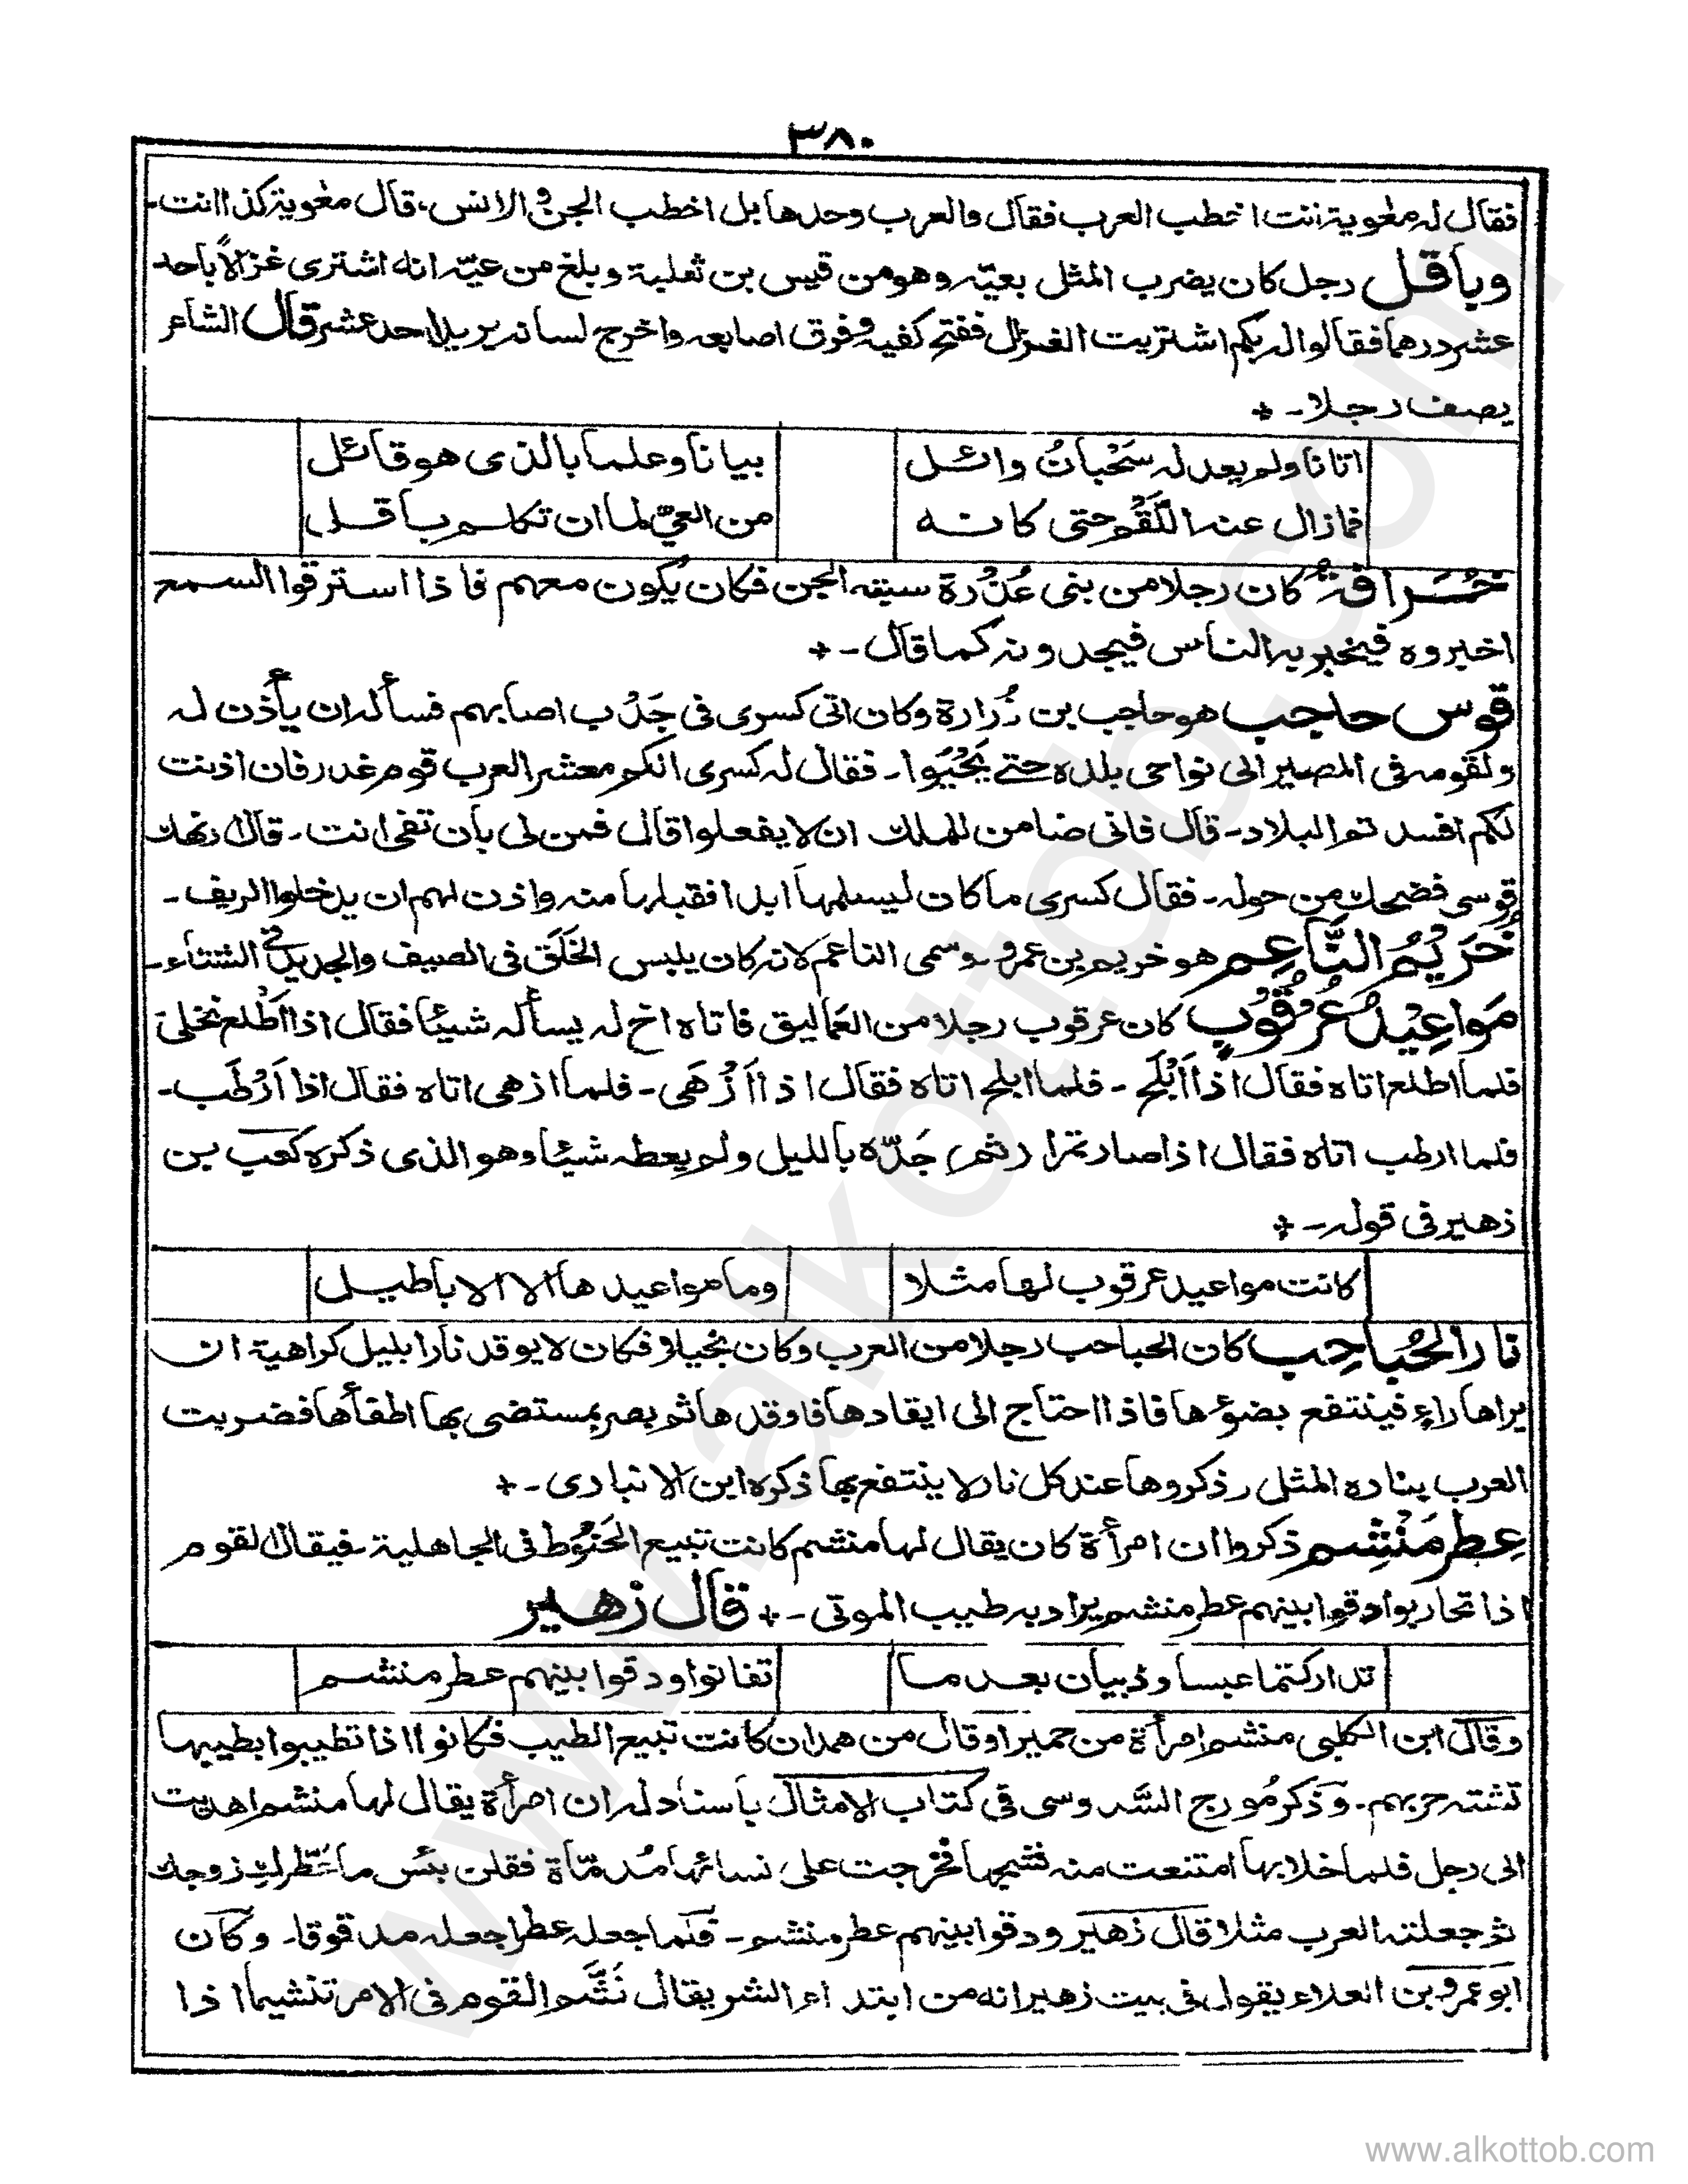 ٣٨٠
فقال له معٰوية انت اخطب العرب فقال والعرب وحدها بل اخطب الجن والانس، قال معٰوية كذا انت-
وباقل رجل كان يضرب المثل بعيّه وهو من قيس بن ثعلبة وبلغ من عيّه انه اشترى غزالاً باحد
عشر درهما فقالوا له بكم اشتريت الغزال ففتح كفيه وفرق اصابعه واخرج لسانه يريد احد عشر قال الشاعر
يصف رجلا- +
اتانا ولم يعد له سَحْبانُ وائل بيانا وعلما بالذى هو قائل
فمازال عنه اللَّقْم حتى كانه من العيّ لما ان تكلم باقل
خُرَافة كان رجلا من بنى عُذْرة سبقه الجن فكان يكون معهم فاذا استرقوا السمع
اخبروه فيخبر به الناس فيجدونه كما قال- +
قوس حاجب هو حاجب بن زُرارة وكان اتى كسرى فى جَدْب اصابهم فسأله ان يأذن له
ولقومه فى المصير الى نواحى بلده حتے يَحْيَوا- فقال له كسرى انكم معشر العرب قوم غدر فان اذنت
لكم افسدتم البلاد- قال فانى ضامن للملك ان لا يفعلوا قال فمن لى بان تفى انت- قال ارهنك
قوسى فضحك من حوله- فقال كسرى ما كان ليسلمها ابدا فقبلها منه واذن لهم ان يدخلوا الريف-
خُرَيْمُ النَّاعِم هو خريم بن عمرو- وسمى الناعم لانه كان يلبس الخَلَق فى الصيف والجديد فى الشتاء-
مَواعِيْدُ عُرْقُوْبٍ كان عرقوب رجلا من العماليق فاتاه اخ له يسأله شيئا فقال اذا اَطْلع نخلى
فلما اطلع اتاه فقال اذا اَبْلَح- فلما ابلح اتاه فقال اذا اَزْهَى- فلما ازهى اتاه فقال اذا اَرْطَب-
فلما ارطب اتاه فقال اذا صار تمرا (ثم) جَدّه بالليل ولم يعطه شيئا وهو الذى ذكره كعب بن
زهير فى قوله- +
كانت مواعيد عرقوب لها مثلا وما مواعيدها الا الاباطيل
نار الحُبَاحِب كان الحباحب رجلا من العرب وكان بخيلا فكان لا يوقد نارا بليل كراهية ان
يراها راءٍ فينتفع بضوءها فاذا احتاج الى ايقادها فاوقدها ثم بصر بمستضى بها اطفأها فضربت
العرب بناره المثل وذكروها عند كل نار لا ينتفع بها ذكره ابن الانبارى- +
عِطر مَنْشِم ذكروا ان امرأة كان يقال لها منشم كانت تبيع الحَنُوط فى الجاهلية- فيقال للقوم
اذا تحاربوا دقوا بينهم عطر منشم يراد به طيب الموتى- + قال زهير
تداركتما عبسا وذبيان بعد ما تفانوا ودقوا بينهم عطر منشم
وقال ابن الكلبى منشم امرأة من حمير او قال من همدان كانت تبيع الطيب فكانوا اذا تطيبوا بطيبها
تشتد حربهم- وذكر مُورج السَّدوسى فى كتاب الامثال باسناد له ان امرأة يقال لها منشم اهديت
الى رجل فلما خلا بها امتنعت منه فشجها فخرجت على نسائها مُدمّاة فقلن بئس ما عطّرك زوجك
ثم جعلته العرب مثلا قال زهير ودقوا بينهم عطر منشم- فلما جعله عطرا جعله مدقوقا- وكان
ابو عمرو بن العلاء يقول فى بيت زهير انه من ابتداء الشر يقال نَشَّم القوم فى الامر تنشيما اذا
www.alkottob.com